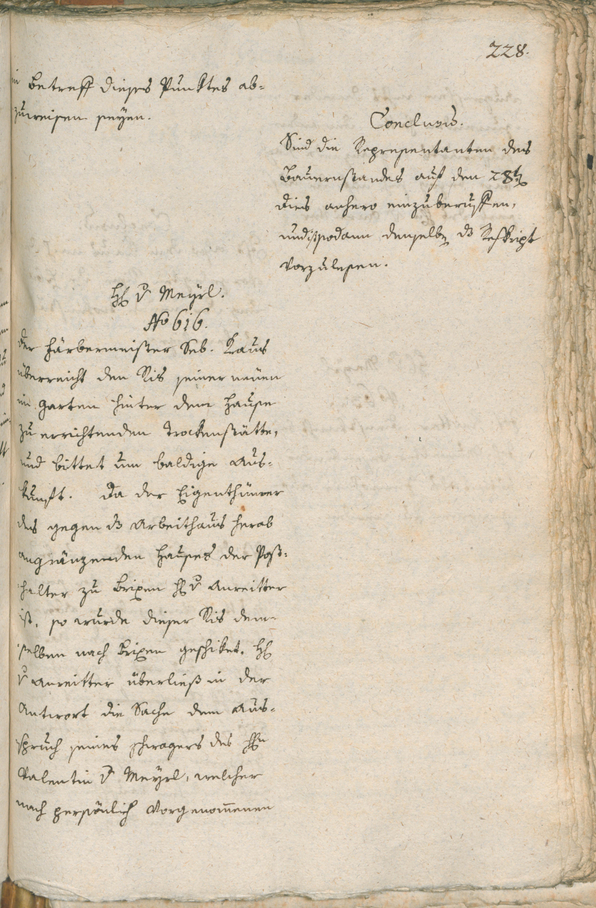 228.
in betreff dieses Punktes ab-
zuweisen seyen.
Conclusis.
Sind die Representanten des
Bauernstandes auf den 28t
dies anhero einzuberuffen,
und sodann denselben dz Reskript
vorzulesen.
H v Meyrl.
No 616.
Der Färbermeister Seb. Kaus
überreicht den Ris seiner neuen
im Garten hinter dem Hause
zu errichtenden Trockenstätte,
und bittet um baldige Aus-
kunft. Da der Eigenthümer
des gegen dz Arbeithaus herab
angränzenden Hauses der Post-
halter zu Brixen H v Anreitter
ist, so wurde dieser Ris dem-
selben nach Brixen geschiket. H
v Anreitter überließ in der
Antwort die Sache dem Aus-
spruch seines Schwagers des Hn
Valentin v Meyrl, welcher
nach persönlich vorgenommenen